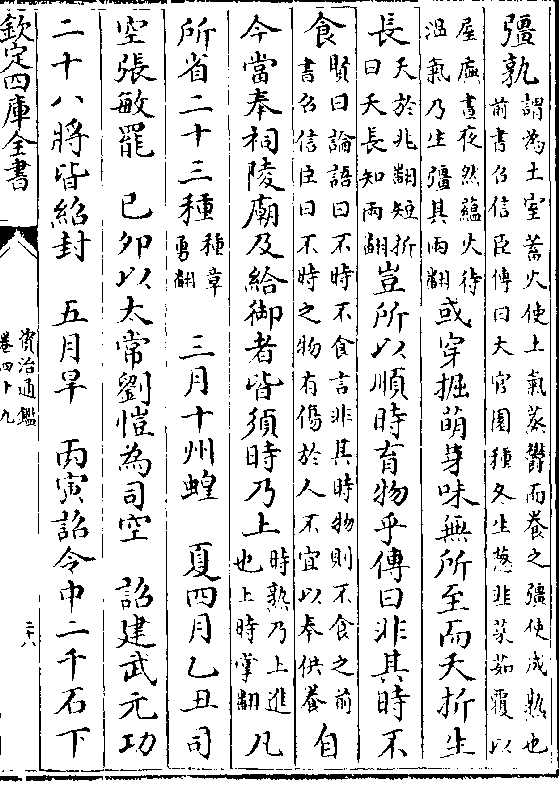 彊孰謂為土室蓄火使土氣蒸鬱而養之彊使成熟也
前書召信臣傳曰大官園種冬生葱韭菜茹覆以
屋廡晝夜然蘊火待
温氣乃生彊其兩翻
或穿掘萌芽味無所至而夭折生
長夭於兆翻短折
曰夭長知兩翻
豈所以順時育物乎傳曰非其時不
食賢曰論語曰不時不食言非其時物則不食之前
書召信臣曰不時之物有傷於人不宜以奉供養
自
今當奉祠陵廟及給御者皆須時乃上時熟乃上進
也上時掌翻
凡
所省二十三種種章
勇翻
三月十州蝗 夏四月乙丑司
空張敏罷 己卯以太常劉愷為司空 詔建武元功
二十八將皆紹封 五月旱 丙寅詔令中二千石下
欽定四庫全書
資治通鑑
卷四十九